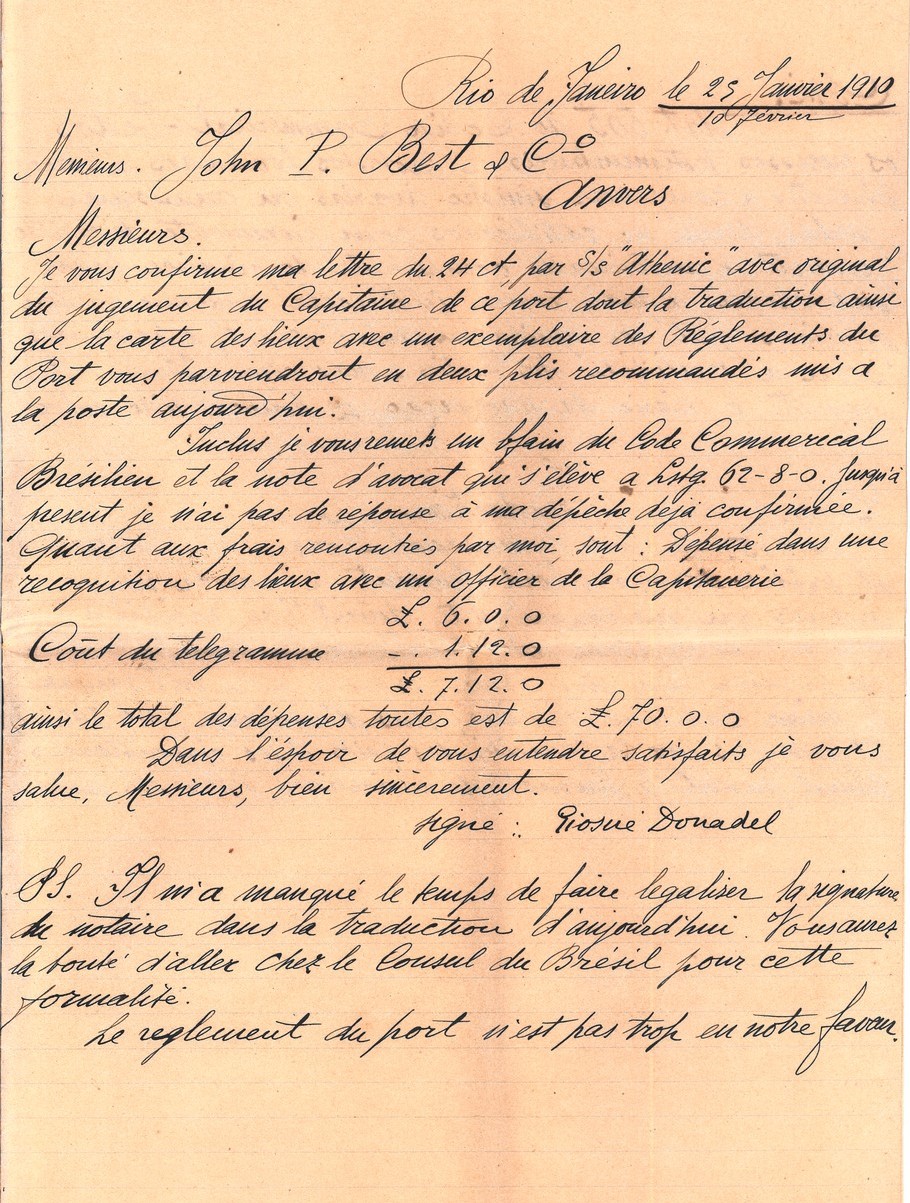 Rio de Janeiro le 25 Janvier 1910
10 février
Messieurs. John P. Best & Cº
Anvers
Messieurs.
Je vous confirme ma lettre du 24 ct, par s/s "Athenic" avec original
du jugement du Capitaine de ce port dont la traduction ainsi
que la carte des lieux avec un exemplaire des Réglements du
Port vous parviendront en deux plis recommandés mis a
la poste aujourd'hui.
Inclus je vous remets un du Code Commerical
Brésilien et la note d'avocat qui s'élève a Lstg. 62-8-0. Jusqu'à
present je n'ai pas de réponse à ma dépêche déjà confirmée.
Quant aux frais rencontrés par moi, sont : Dépensé dans une
recognition des lieux avec un officier de la Capitanerie
£. 6.0.0
Coût du telegramme -. 1.12.0
£. 7.12.0
ainsi le total des dépenses toutes est de £. 70.0.0
Dans l'éspoir de vous entendre satisfaits je vous
salue, Messieurs, bien sincerement.
signé : Giosué Donadel
PS. Il m'a manqué le temps de faire legaliser la signature
du notaire dans la traduction d'aujourd'hui. Vous aurez
la bonté d'aller chez le Consul du Brésil pour cette
formalité.
Le reglement du port n'est pas trop en notre faveur.